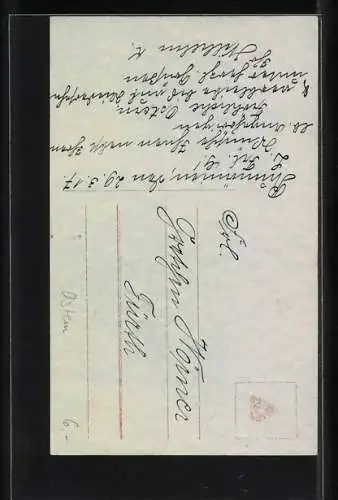 Rumänien, den 29.3.17.
L. Frl. G!
Wünsche Ihnen nebst Ihren
lb. Angehörigen
fröhliche Ostern
u. verbleibe bis auf Wiedersehn
unter herzl. Grüßen
Wilhelm K.
Frl.
Gretchen Körner
Fürth
Ostern
6.-